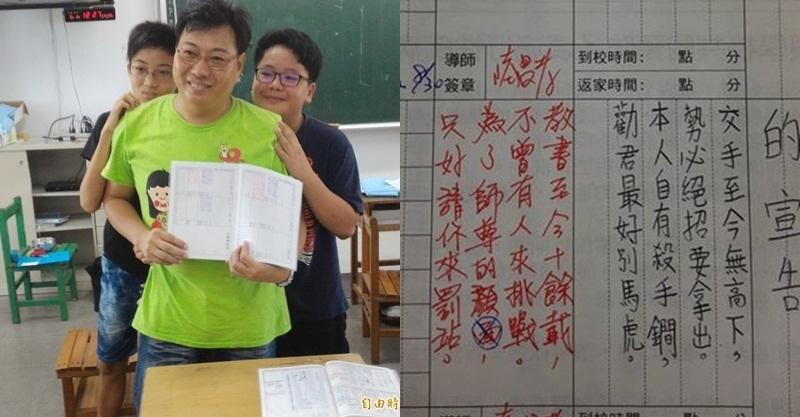 導師
簽章
8/30
到校時間: 點 分
返家時間: 點 分
的宣告
交手至今無高下，
勢必絕招要拿出。
本人自有殺手鐧，
勸君最好別馬虎。
教書至今十餘載，
不曾有人來挑戰。
為了師尊的顏面，
只好請你來罰站。
到校時間: 點 分
自由時